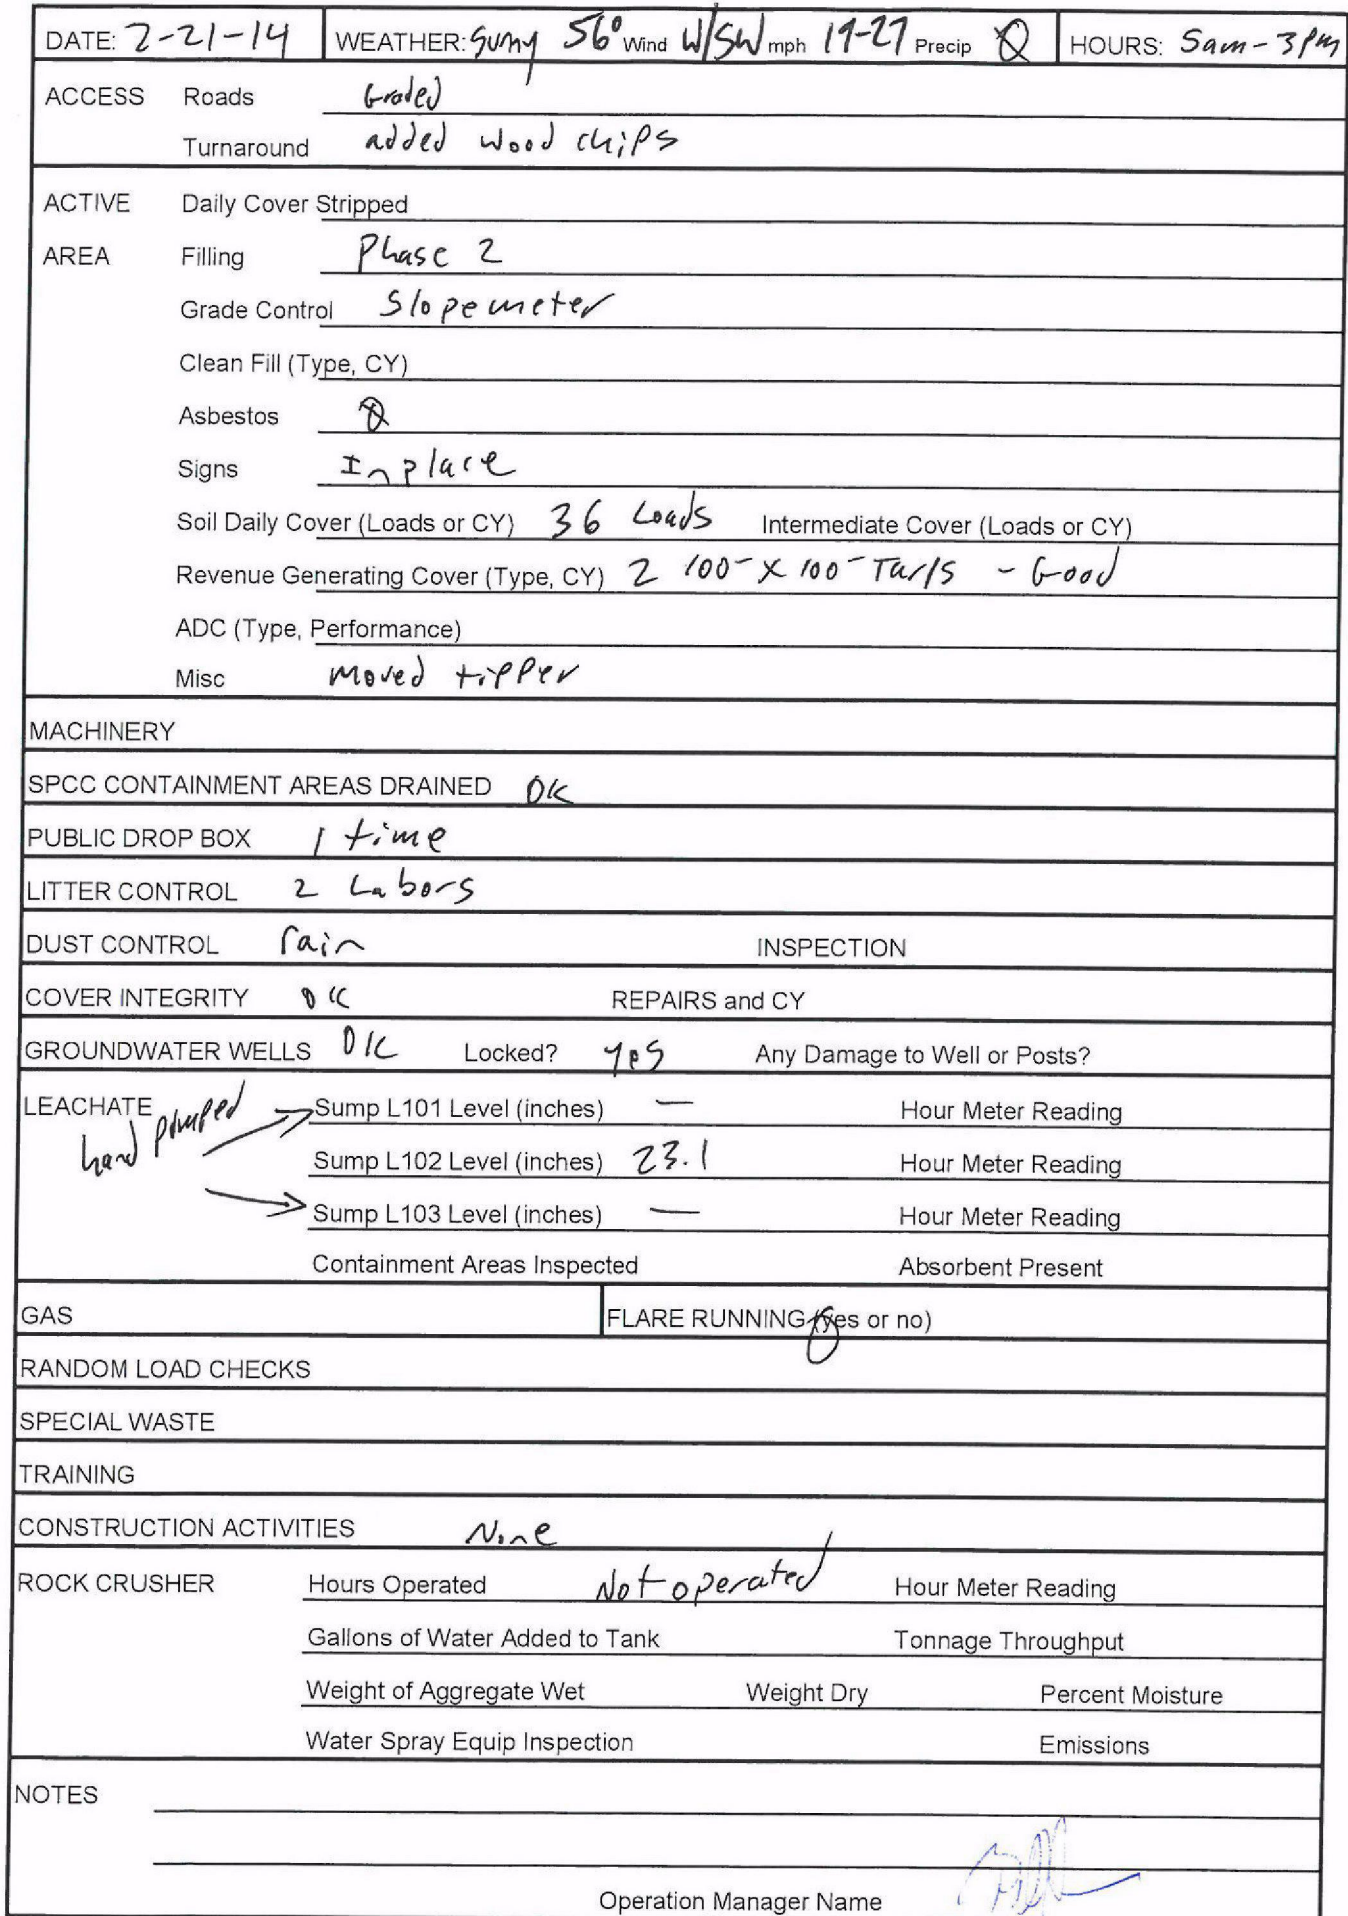 DATE: 2-21-14 WEATHER: Suny 56° Wind W/SW mph 19-27 Precip Ø HOURS: 5am-3pm
ACCESS Roads Graded
Turnaround added wood chips
ACTIVE Daily Cover Stripped
AREA Filling Phase 2
Grade Control Slopemeter
Clean Fill (Type, CY)
Asbestos Ø
Signs In place
Soil Daily Cover (Loads or CY) 36 Loads Intermediate Cover (Loads or CY)
Revenue Generating Cover (Type, CY) 2 100- x 100- Tarps - Good
ADC (Type, Performance)
Misc Moved tipper
MACHINERY
SPCC CONTAINMENT AREAS DRAINED OK
PUBLIC DROP BOX 1 time
LITTER CONTROL 2 Labors
DUST CONTROL rain INSPECTION
COVER INTEGRITY OK REPAIRS and CY
GROUNDWATER WELLS OK Locked? yes Any Damage to Well or Posts?
LEACHATE Sump L101 Level (inches) — Hour Meter Reading
hand pumped
Sump L102 Level (inches) 23.1 Hour Meter Reading
Sump L103 Level (inches) — Hour Meter Reading
Containment Areas Inspected Absorbent Present
GAS FLARE RUNNING (yes or no)
RANDOM LOAD CHECKS
SPECIAL WASTE
TRAINING
CONSTRUCTION ACTIVITIES None
ROCK CRUSHER Hours Operated Not operated Hour Meter Reading
Gallons of Water Added to Tank Tonnage Throughput
Weight of Aggregate Wet Weight Dry Percent Moisture
Water Spray Equip Inspection Emissions
NOTES
Operation Manager Name